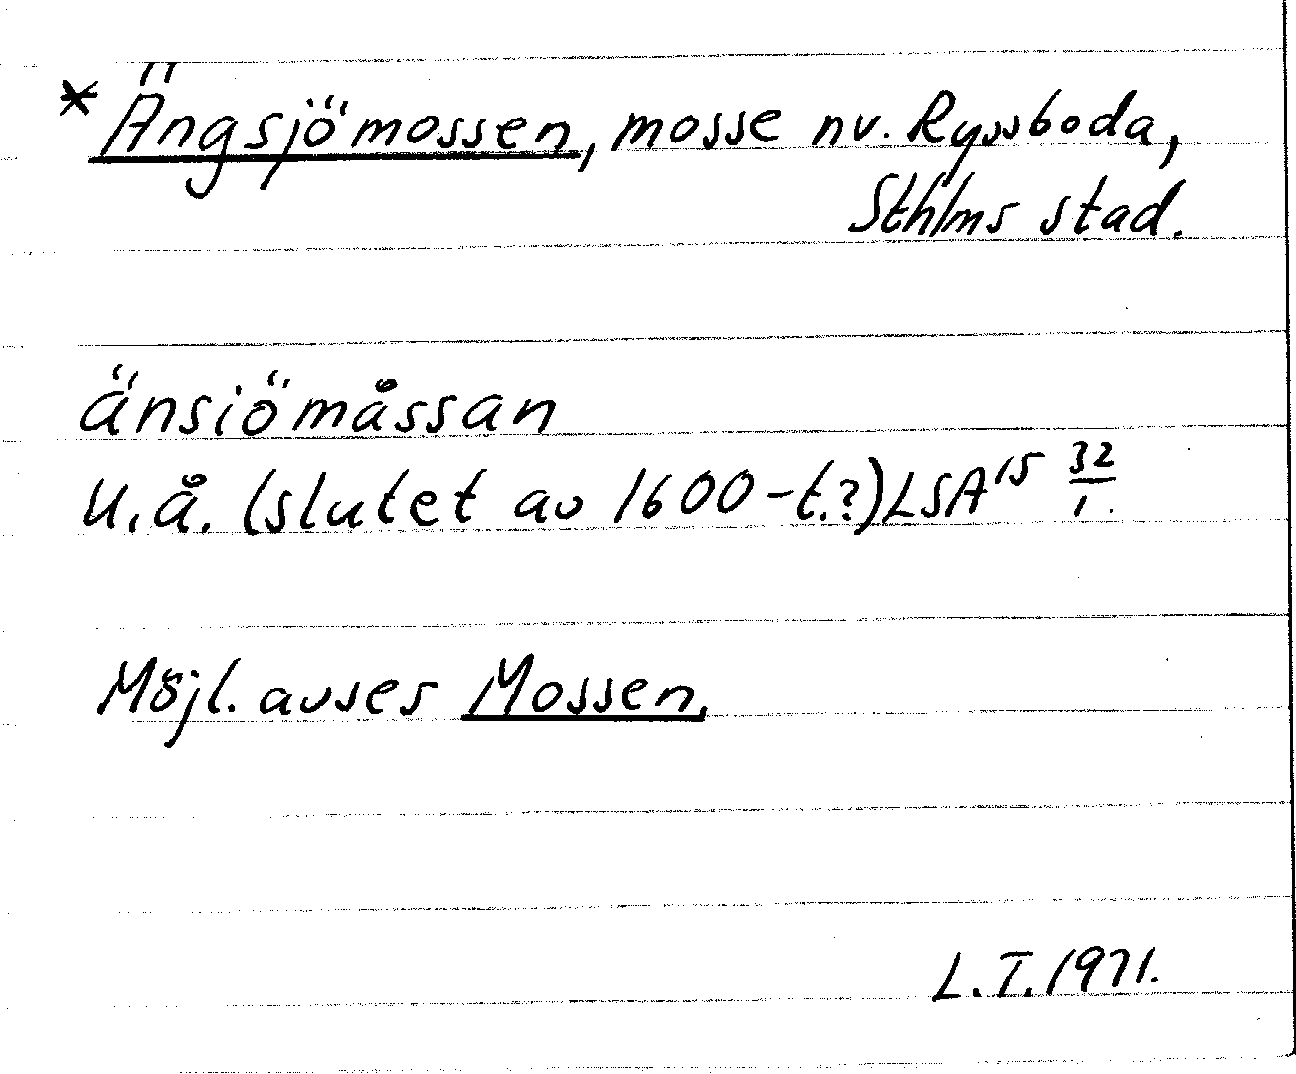 * Ängsjömossen, mosse nv. Ryssboda,
Sthlms stad.
änsiömåssan
U.å. (slutet av 1600-t.?) LSA 15 32/1.
Möjl. avses Mossen.
L.T. 1971.